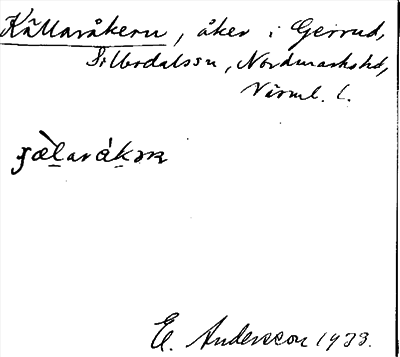 Källaråkern, åker i Gerrud,
Silbodalssn, Nordmarkshd,
Värml. l.
E. Andersson 1933.